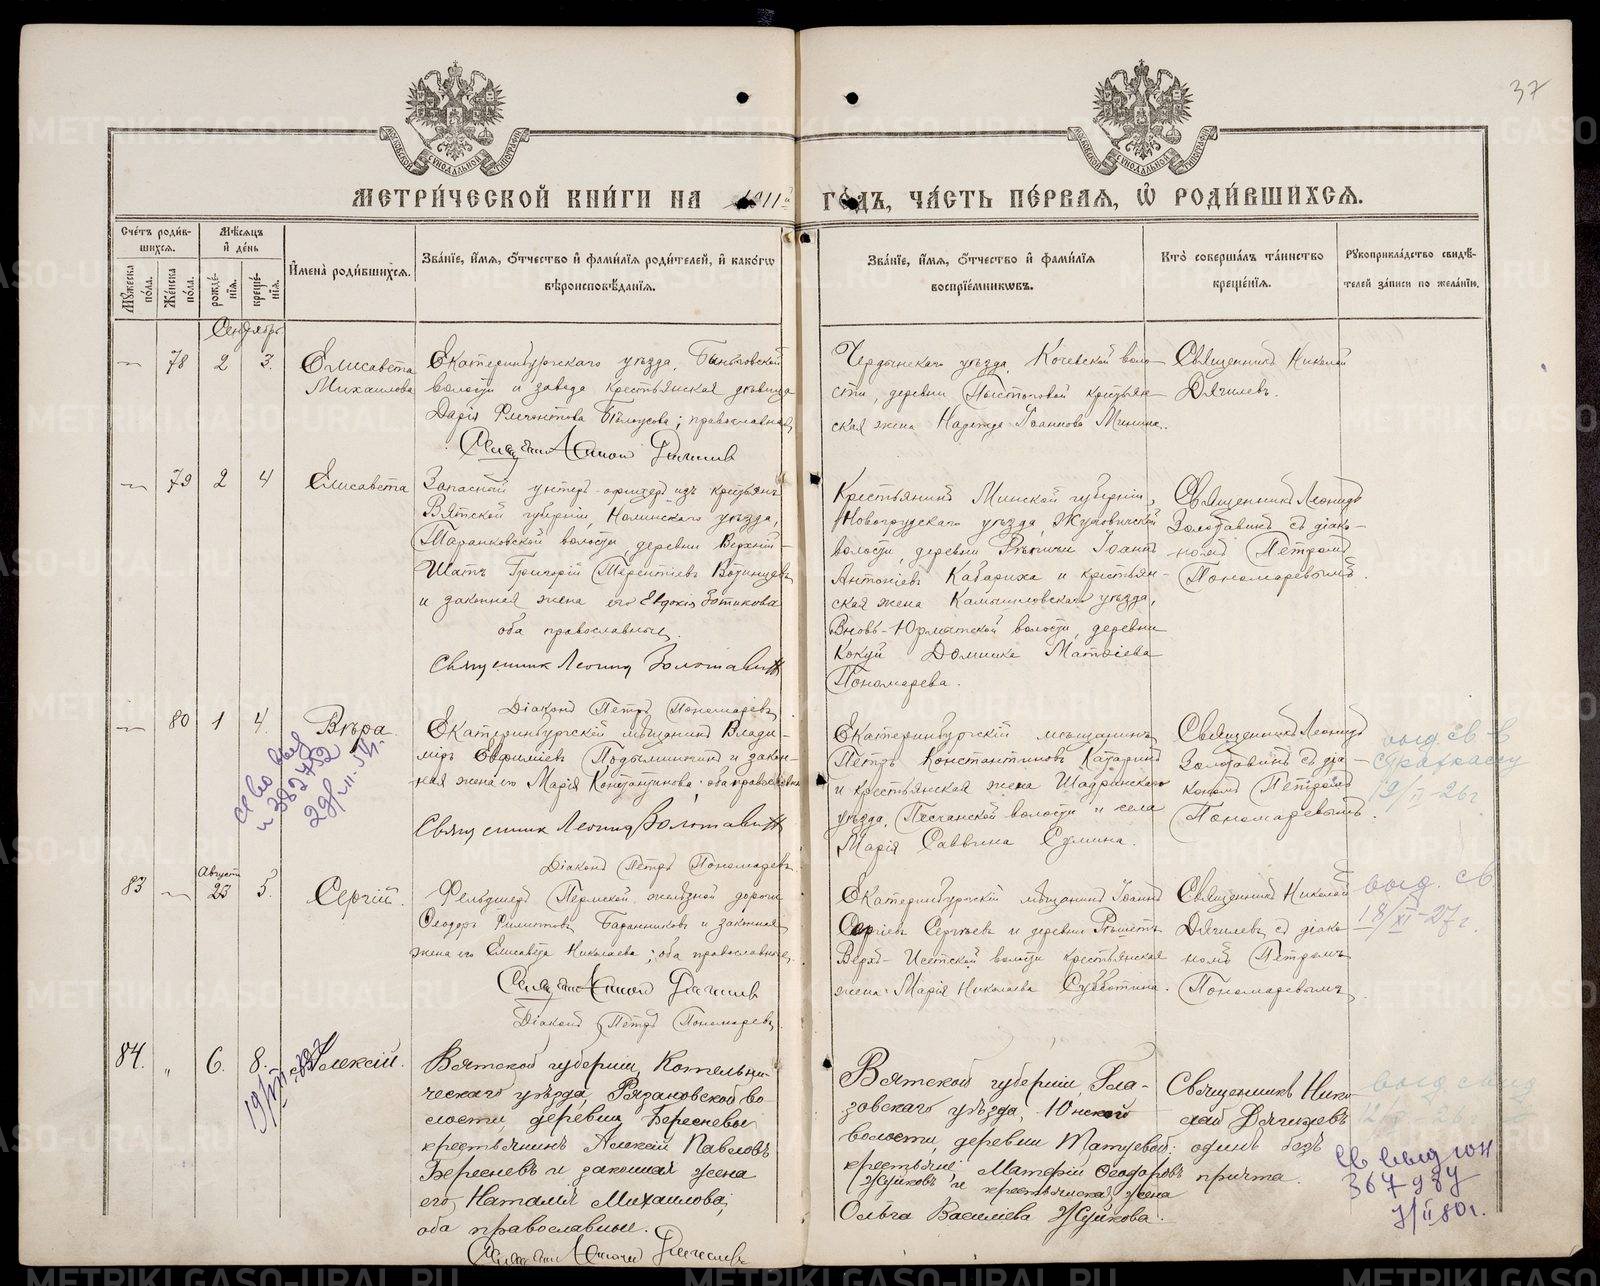 37
МОСКОВСКОЙ СѴНОДАЛЬНОЙ ТИПОГРАФІИ
МОСКОВСКОЙ СѴНОДАЛЬНОЙ ТИПОГРАФІИ
МЕТРИ́ЧЕСКОЙ КНИ́ГИ НА 1911й ГО́ДЪ, ЧА́СТЬ ПЕ́РВАѦ, Ѡ҆ РОДИ́ВШИХСѦ.
Сче́тъ роди́в-
шихся.
Мѣ́сяцъ
и҆ де́нь
Мꙋ́жеска по́ла.
Же́нска по́ла.
рожде́-
нїя.
креще́-
нїя.
И҆мена̀ роди́вшихся.
Зва́нїе, и҆́мя, ѻ҆́тчество и҆ фами́лїя роди́телей, и҆ како́гѡ
вѣроисповѣ́данїя.
Зва́нїе, и҆́мя, ѻ҆́тчество и҆ фами́лїя
воспрїе́мникѡвъ.
Кто̀ соверша́лъ та́инство
креще́нїя.
Рꙋкоприкла́дство свидѣ́-
телей за́писи по жела́нїю.
Сентябрь
— 78 2 3.
Елисавета
Михаилова
Екатеринбургскаго уѣзда, Быньговской
волости и завода крестьянская дѣвица
Дарія Бѣлоусова; православная
Священникъ Николай Дягилевъ
Чердынскаго уѣзда, Кочевской воло-
сти, деревни крестьян-
ская жена Надежда Іоаннова Минина.
Священникъ Николай
Дягилевъ.
— 79 2 4
Елисавета
Запасной унтеръ-офицеръ изъ крестьянъ
Вятской губерніи, Нолинскаго уѣзда,
Таранковской волости, деревни Верхній-
Шатъ Григорій Терентіевъ
и законная жена его Евдокія Зотикова
оба православные.
Священник Леонид Золотавин
Діаконъ Петръ Пономаревъ
Крестьянинъ Минской губерніи,
Новогрудскаго уѣзда,
волости, деревни Іоаннъ
Антоніевъ Кабариха и крестьян-
ская жена Камышловскаго уѣзда,
Вновь-Юрмытской волости, деревни
Кокуй Домника Матѳіева
Пономарева.
Священникъ Леонидъ
Золотавинъ съ діако-
номъ Петромъ
Пономаревымъ.
— 80 1 4.
Вѣра
Екатеринбургскій мѣщанинъ Влади-
міръ Евфиміевъ и закон-
ная жена его Марія Константинова: оба православные
Священник Леонид Золотавин
Діаконъ Петръ Пономаревъ
Екатеринбургскій мѣщанинъ
Петръ Константиновъ
и крестьянская жена Шадринскаго
уѣзда, Песчанской волости и села
Марія Саввина Сулина.
Священникъ Леонидъ
Золотавинъ съ діа-
кономъ Петромъ
Пономаревымъ.
382752
выд. св-в
19/II-26г
83 — Августъ 23 5.
Сергій.
Фельдшеръ Пермской желѣзной дороги
Ѳеодоръ Баранниковъ и законная
жена его Елисавета Николаева; оба православные.
Священникъ Николай Дягилевъ
Діаконъ Петръ Пономаревъ
Екатеринбургскій мѣщанинъ Іоаннъ
Сергіевъ Сергѣевъ и деревни Рѣшетъ
Верхъ-Исетской волости крестьянская
жена Марія Николаева Субботина.
Священникъ Николай
Дягилевъ съ діако-
номъ Петромъ
Пономаревымъ.
выд. св.
18/XI-27г.
84. " 6. 8.
Алексій.
Вятской губерніи, Котельни-
ческаго уѣзда, Рязановской во-
лости, деревни Бересневы
крестьянинъ Алексій Павловъ
Бересневъ и законная жена
его, Наталія Михаилова;
оба православные.
Священникъ Николай Дягилевъ
Вятской губерніи, Гла-
зовскаго уѣзда, Юнской
волости, деревни
крестьян. Матѳій Ѳеодоровъ
Жуйковъ и крестьянская жена
Ольга Василіева Жуйкова.
Священникъ Нико-
лай Дягилевъ
одинъ безъ
причта.
выд. свид
св выд ЮН
367934
7/II 80г.